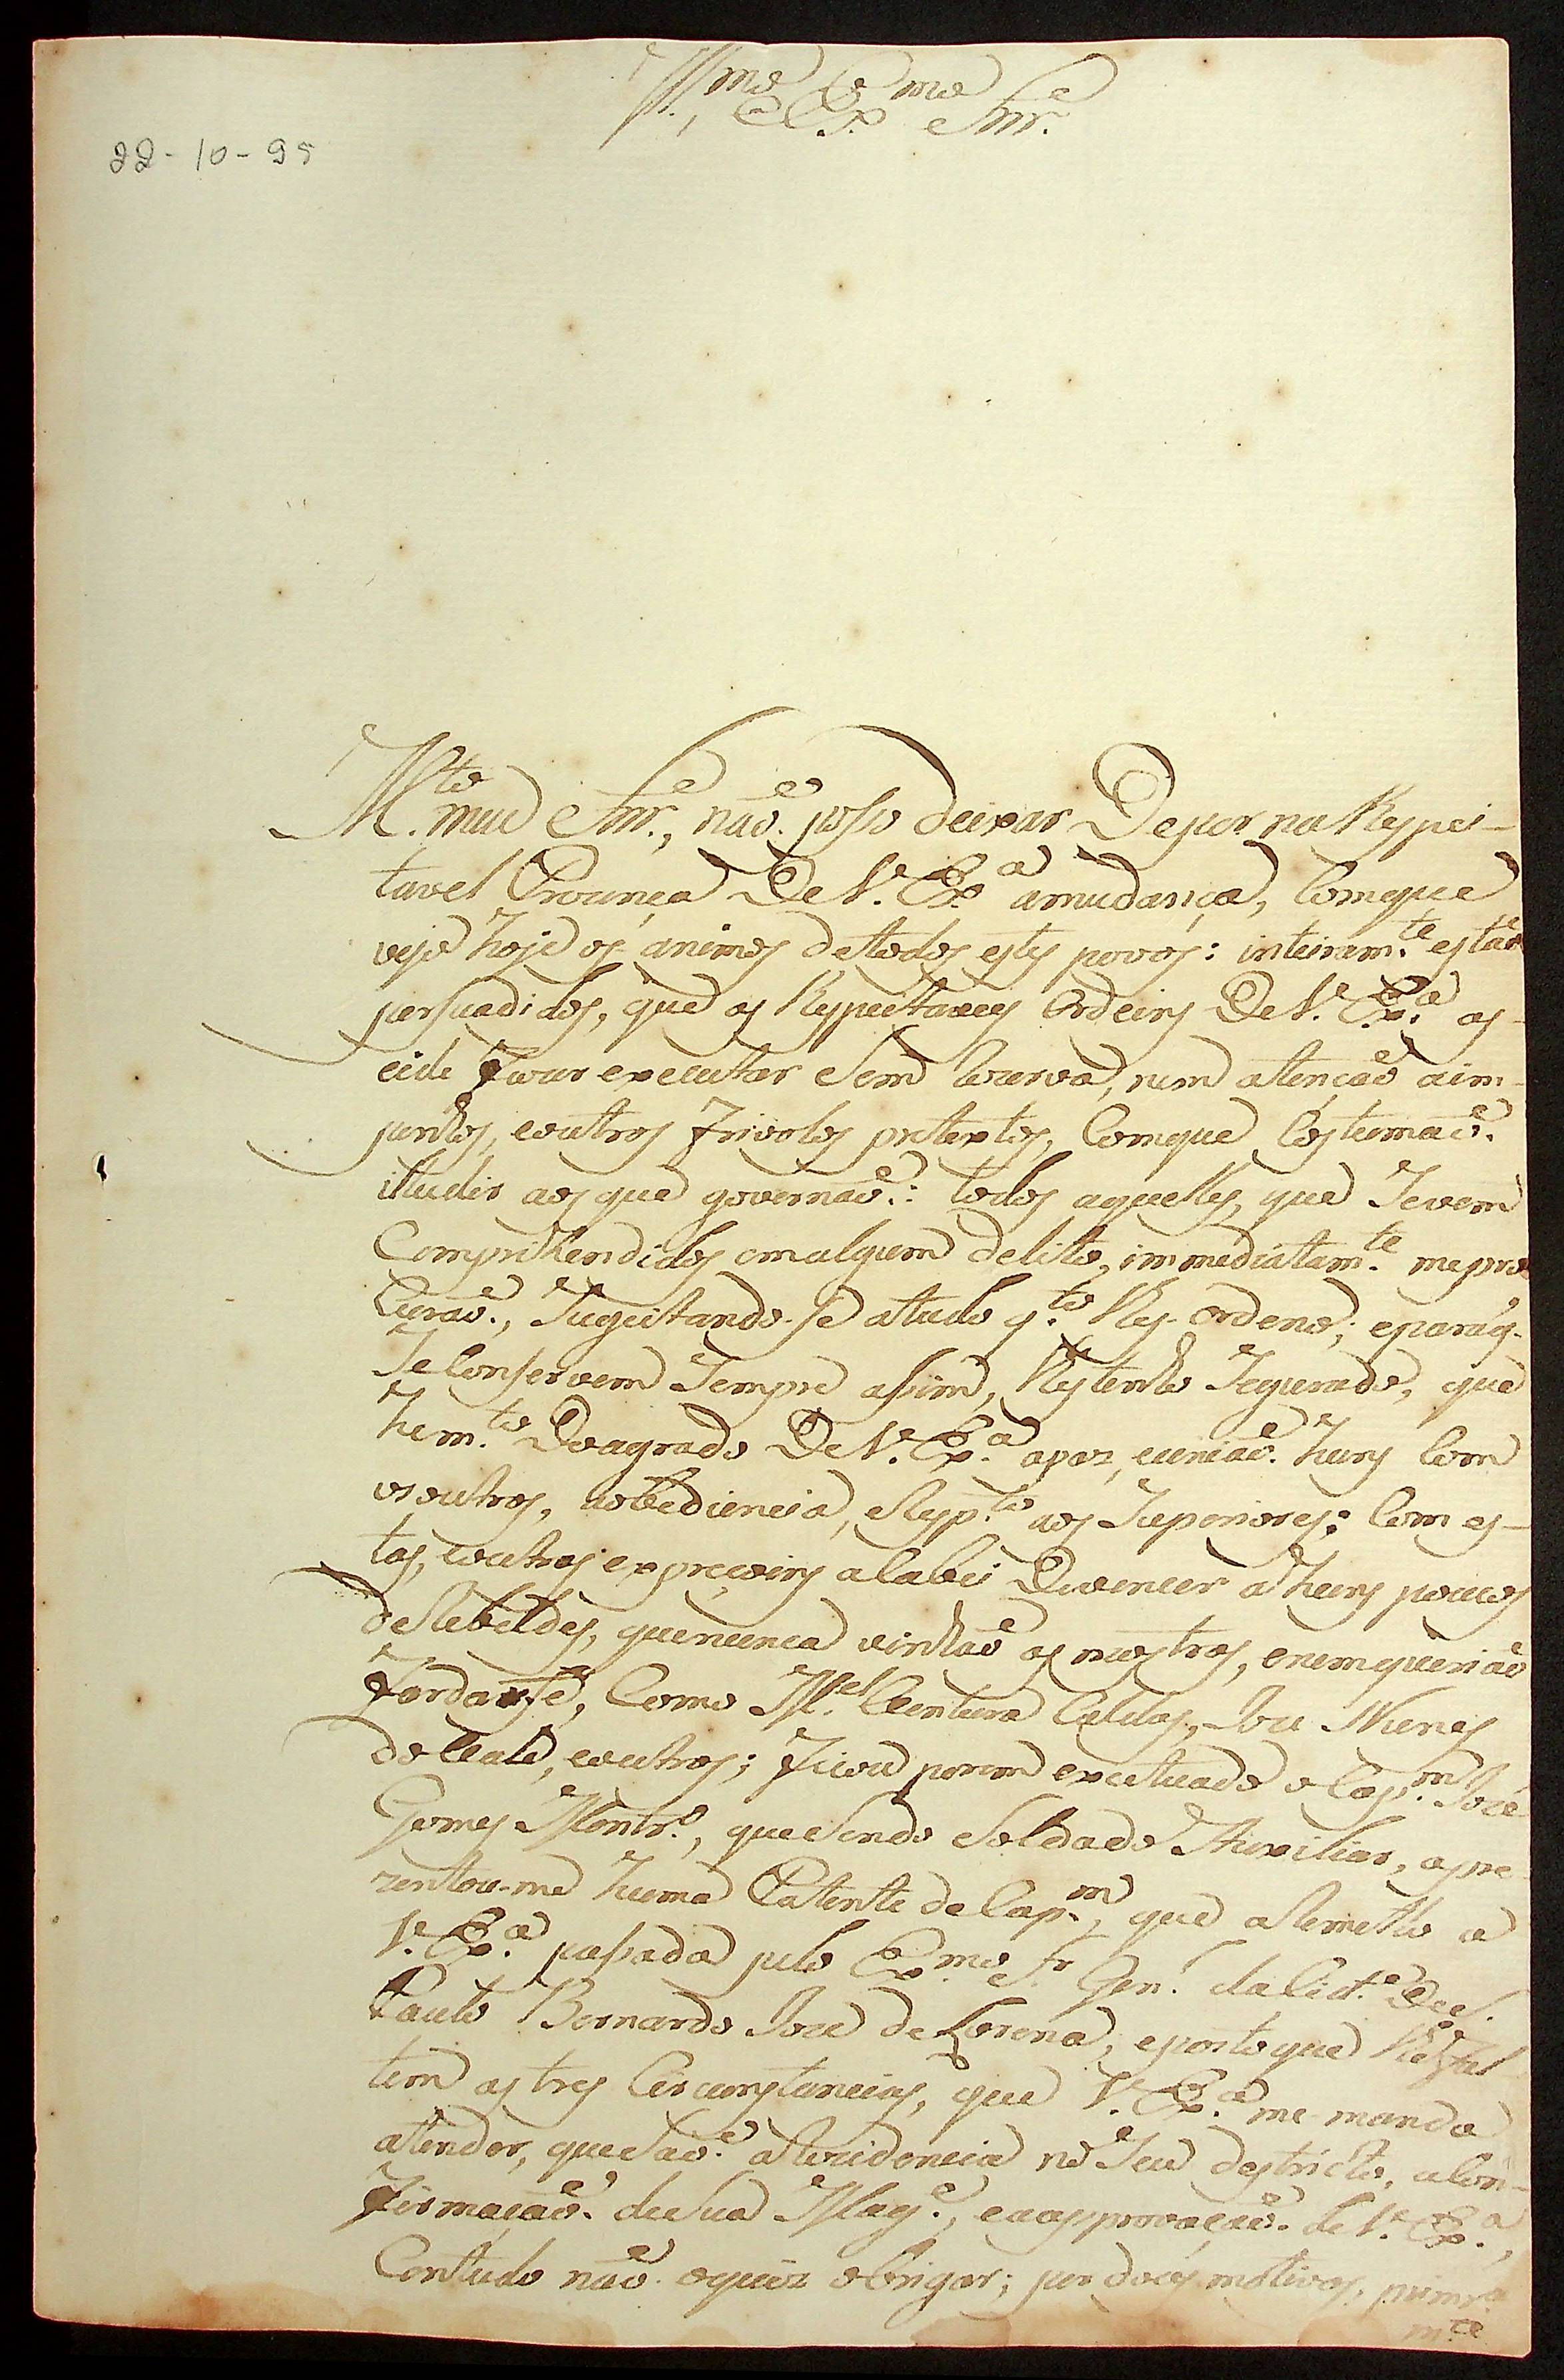 Ill.mo e Ex.mo Snr.
22-10-95
M.to meu Snr., naõ posso deixar De por na Respei-
tavel Prezença De V. Ex.a amudança, Comque
vejo hoje os animos detodos estes povos: inteiram.te estaõ
persuadidos, que as Respeitaveis Ordeins De V. Ex.a as
eide Fazer executar Sem Rezerva, nem atençaõ aim-
penhos, eoutros Frivolos pretextos, Comque Costumaõ
illudir aos que governaõ: todos aquelles, que Sevem
Comprihendidos emalgum delito, immediatam.te mepro
Curaõ, Sugeitando-se atudo q.to lhes Ordeno; eparaq.
Seconservem Sempre assim, lhes tenho Segurado, que
hem.to Doagrado De V. Ex.a apaz, euniaõ huns Com
osoutros, aobediencia, eResp.to aos Superiores: Com es-
tas, eoutras expreçoins acabei Devencer a huns poucos
deRebeldes, quenunca vinhaõ as mostras, enemqueriaõ
Fardarse, Como M.el Ventura Caldas, Joze Nunes
do Vale, eoutros; Ficou porem exceituado o Cap.m Jozé
Gomes Montr.o, quesendo Soldado Auxiliar, apre-
zentou-me huma Patente de Cap.m, que aRemetto a
V. Ex.a passada pelo Ex.mo Sr. Gen.l daCid.e DeS.
Paulo Bernardo Joze de Lorena, eposto que lhe fal-
tem as tres Circunstancias, que V. Ex.a me manda
atender, quesaõ aRezidencia no Seu destricto, aCon-
Firmaçaõ deSua Mag.e, eaapprovaçaõ de V. Ex.a,
Contudo naõ oquiz obrigar; por dois motivos, primr.a
m.te